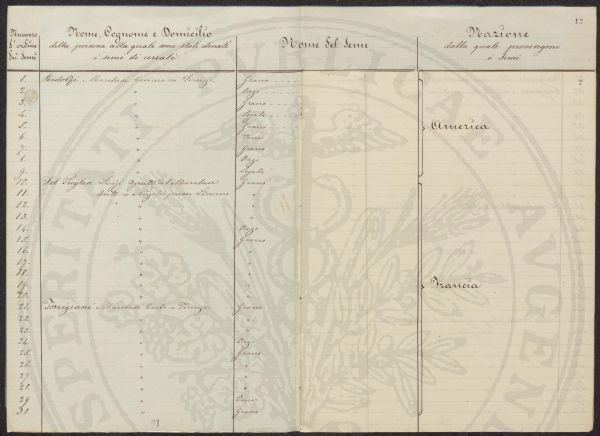 12
Numero d'ordine dei Semi
Nome, Cognome e Domicilio
della persona alla quale sono stati donati
i semi di cereali
Nome del Seme
Nazione
dalla quale provengono
i Semi
1. Ridolfi Marchese Cosimo - Firenze Grano
2. " Orzo
3. " Grano
4. " Segale
5. " Grano
6. "
7. " Grano
8. " Orzo
9. " Segale
America
10. Del Puglia Luigi Agente del Marchese Grano
11. "
12. " "
13. " "
14. " Orzo
15. " Grano
16. " "
17. " "
18. " "
19. " "
20. " "
Francia
21. Torrigiani Marchese Carlo - Firenze Grano
22. " "
23. " "
24. " Orzo
25. " Grano
26. " "
27. " "
28. " "
29. "
30. " Grano
PUBLICAE